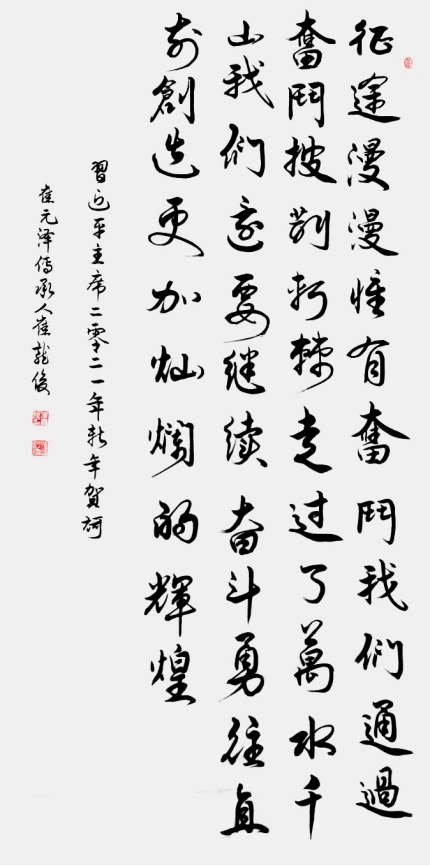 征途漫漫惟有奮鬥我們通過
奮鬥披荆斬棘走過了萬水千
山我們還要继续奋斗勇往直
前創造更加灿爛的輝煌
習近平主席二零二一年新年賀詞
崔元泽傳承人崔龍俊